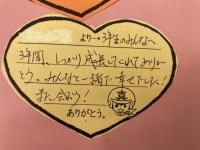 より→3年生のみんなへ
3年間、しっかり成長してくれてありが
とう。みんなと一緒で幸せでした!
また、会おう!
ありがとう。